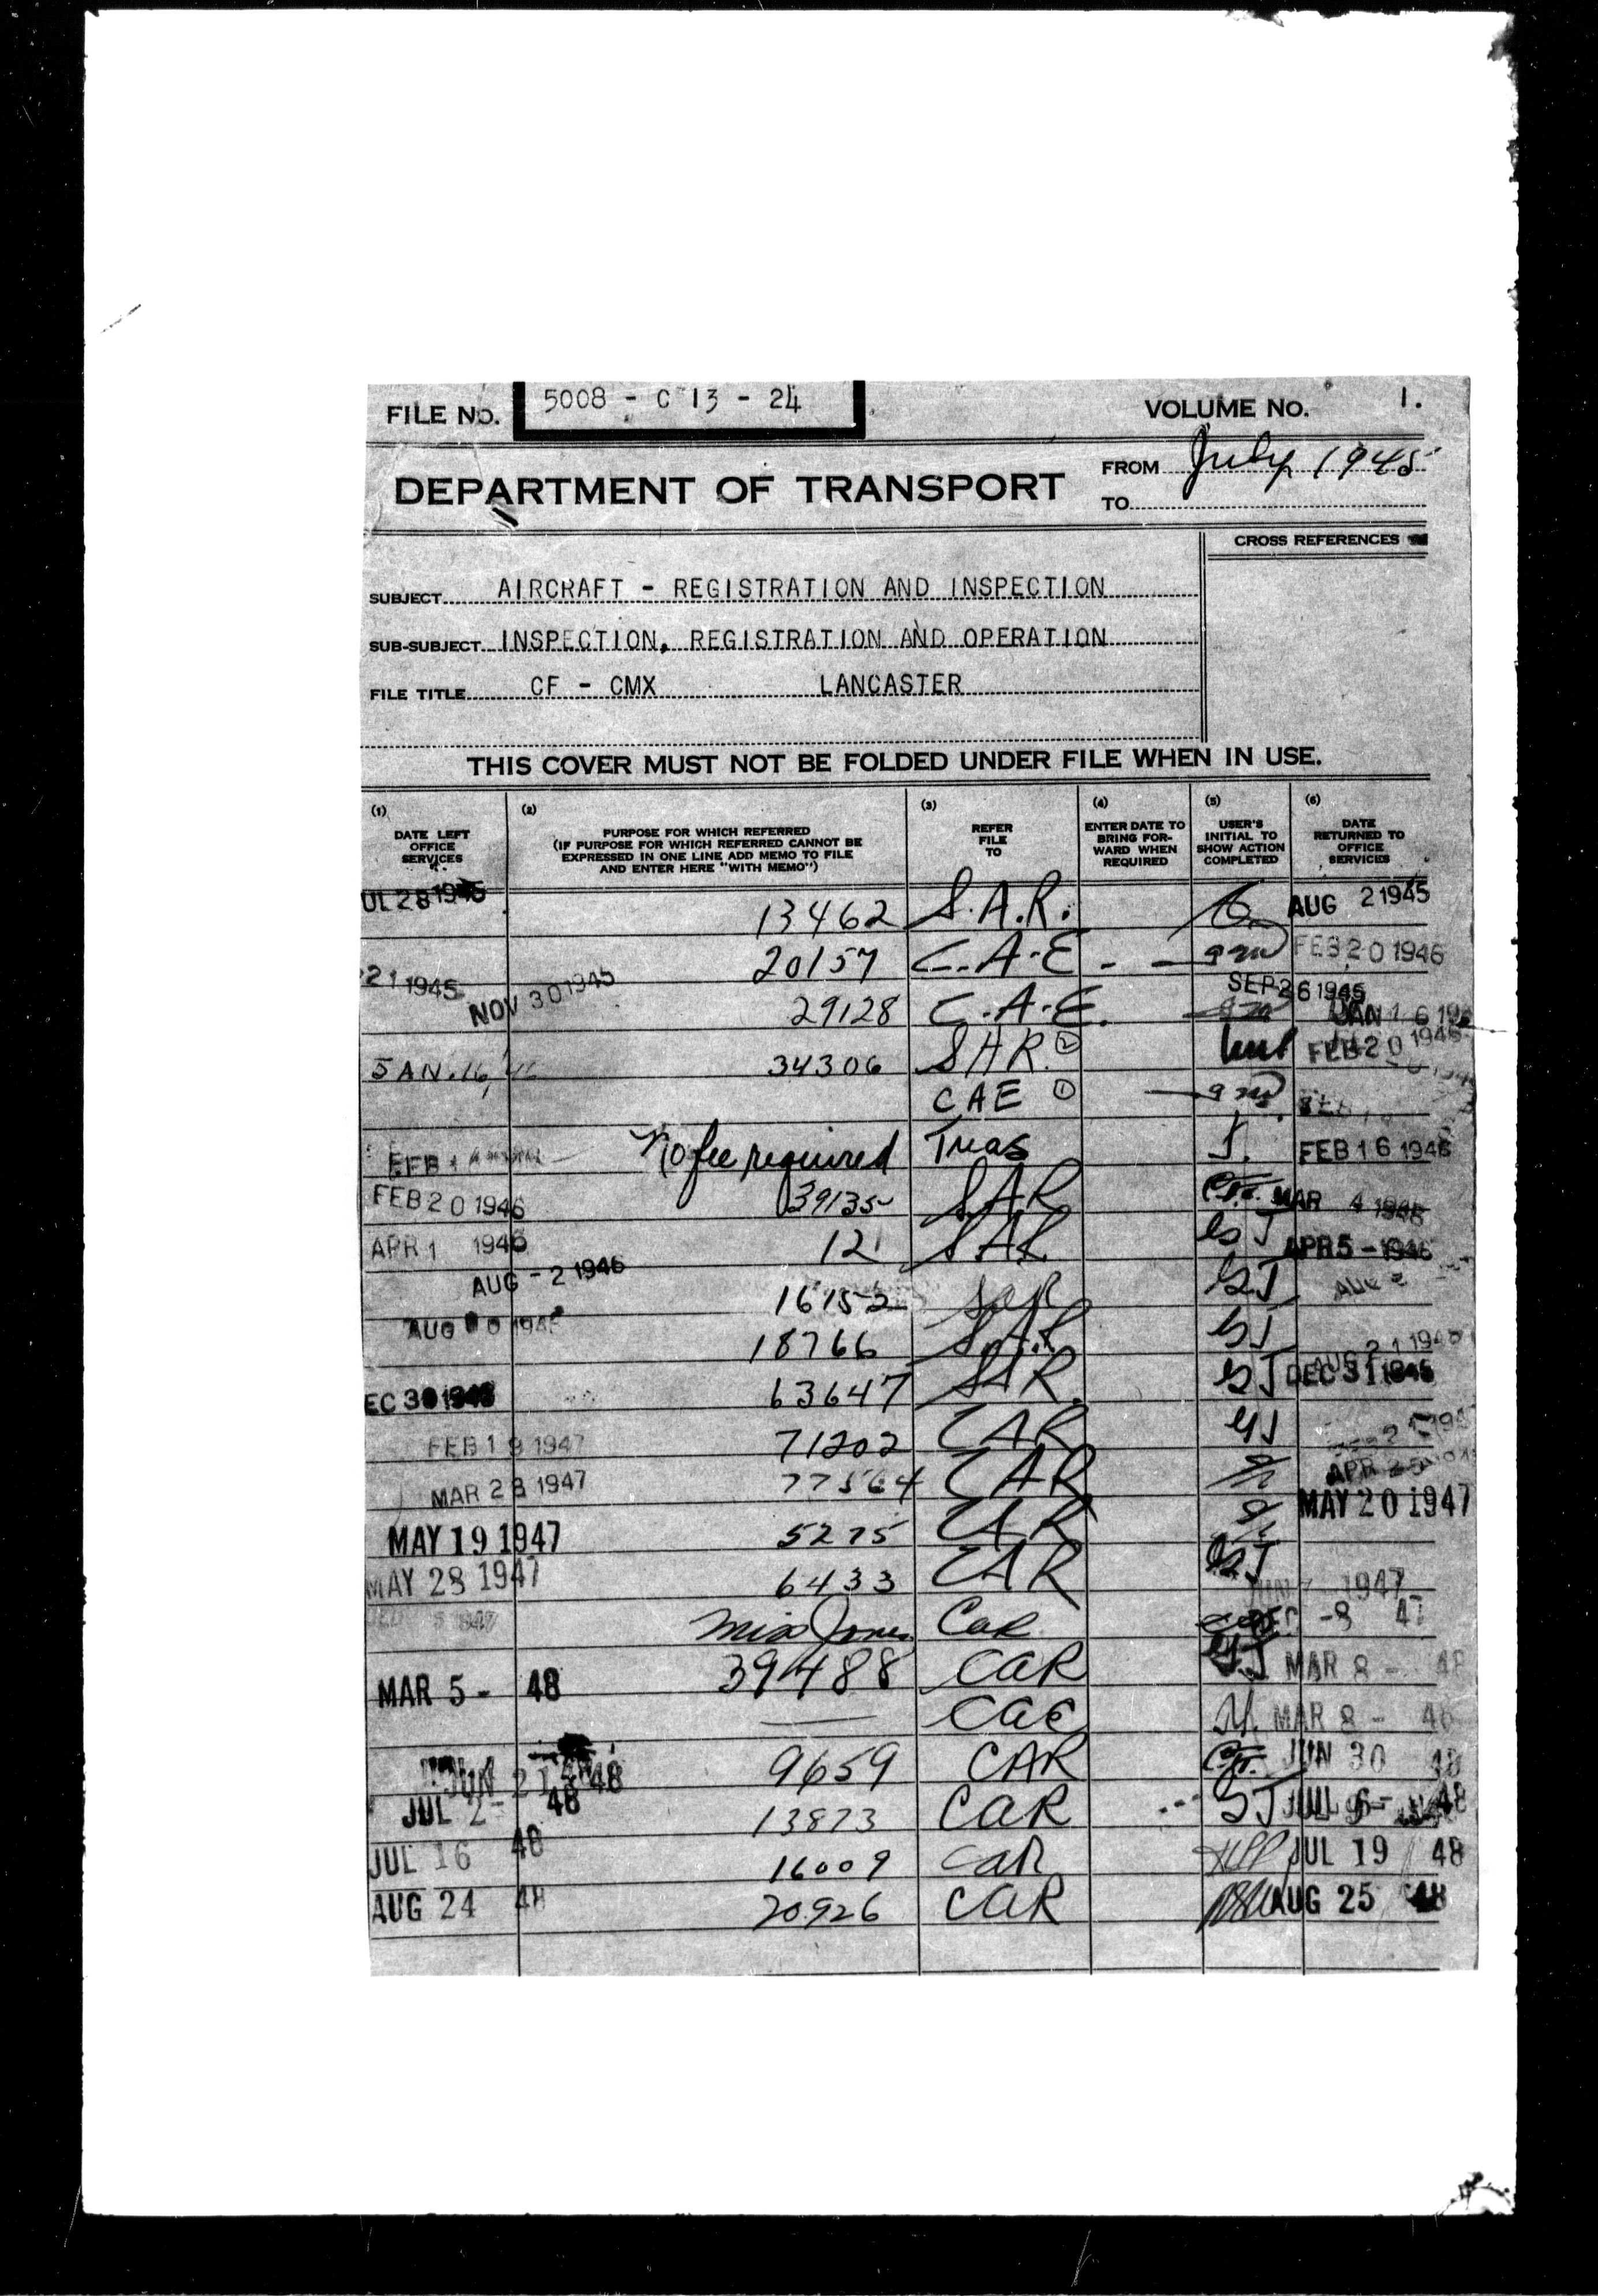 FILE NO. 5008 - C 13 - 24 VOLUME NO. 1.
DEPARTMENT OF TRANSPORT
FROM July 1945
TO
CROSS REFERENCES
SUBJECT AIRCRAFT - REGISTRATION AND INSPECTION
SUB-SUBJECT INSPECTION, REGISTRATION AND OPERATION
FILE TITLE CF - CMX LANCASTER
THIS COVER MUST NOT BE FOLDED UNDER FILE WHEN IN USE.
(1) DATE LEFT OFFICE SERVICES
(2) PURPOSE FOR WHICH REFERRED (IF PURPOSE FOR WHICH REFERRED CANNOT BE EXPRESSED IN ONE LINE ADD MEMO TO FILE AND ENTER HERE "WITH MEMO")
(3) REFER FILE TO
(4) ENTER DATE TO BRING FORWARD WHEN REQUIRED
(5) USER'S INITIAL TO SHOW ACTION COMPLETED
(6) DATE RETURNED TO OFFICE SERVICES
UL 28 1945 13462 S.A.R. AUG 2 1945
21 1945 20157 C.A.E. FEB 20 1946
NOV 30 1945 29128 C.A.E. SEP 26 1945 JAN 16
JAN. 16, 46 34306 SAR. 2 FEB 20 1946
CAE 1
FEB 1 No fee required Treas J. FEB 16 1946
FEB 20 1946 39135 SAR MAR 4 1946
APR 1 1946 12 SAR GSJ APR 5 - 1946
AUG - 2 1946 16152 SAR GSJ AUG 2
AUG 1946 18766 SAR GSJ AUG 21 1946
EC 30 1946 63647 SAR. GSJ DEC 31 1946
FEB 19 1947 71202 CAR GSJ
MAR 28 1947 77564 CAR APR 25
MAY 19 1947 5275 CAR MAY 20 1947
MAY 28 1947 6433 CAR GSJ 1947
Miss Jones CAR DEC -8 47
MAR 5 - 48 39488 CAR GSJ MAR 8 - 48
CAE MAR 8 - 48
JUN 21 48 9659 CAR JUN 30 48
JUL 2 - 48 13873 CAR GSJ JUL 6 - 48
JUL 16 48 16009 CAR JUL 19 48
AUG 24 48 20926 CAR AUG 25 48